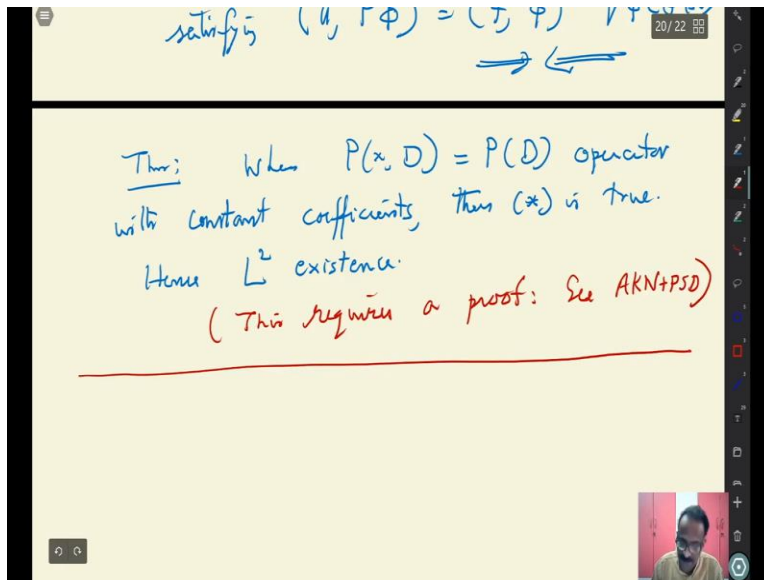 satisfying (u, PΦ) = (f, φ) ∀
20/22
Thm: When P(x, D) = P(D) operator
with constant coefficients, then (*) is true.
Hence L² existence.
(This requires a proof: See AKN+PSD)